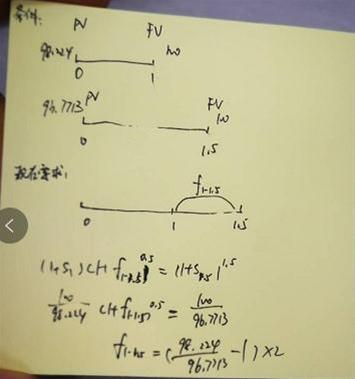 条件:
PV FV
98.224 100
0 1
PV FV
96.7713 100
0 1.5
现在要求:
f1-1.5
0 1 1.5
(1+S1)(1+f1-1.5)^0.5 = (1+S1.5)^1.5
100/98.224 (1+f1-1.5)^0.5 = 100/96.7713
f1-1.5 = (98.224/96.7713 - 1) × 2